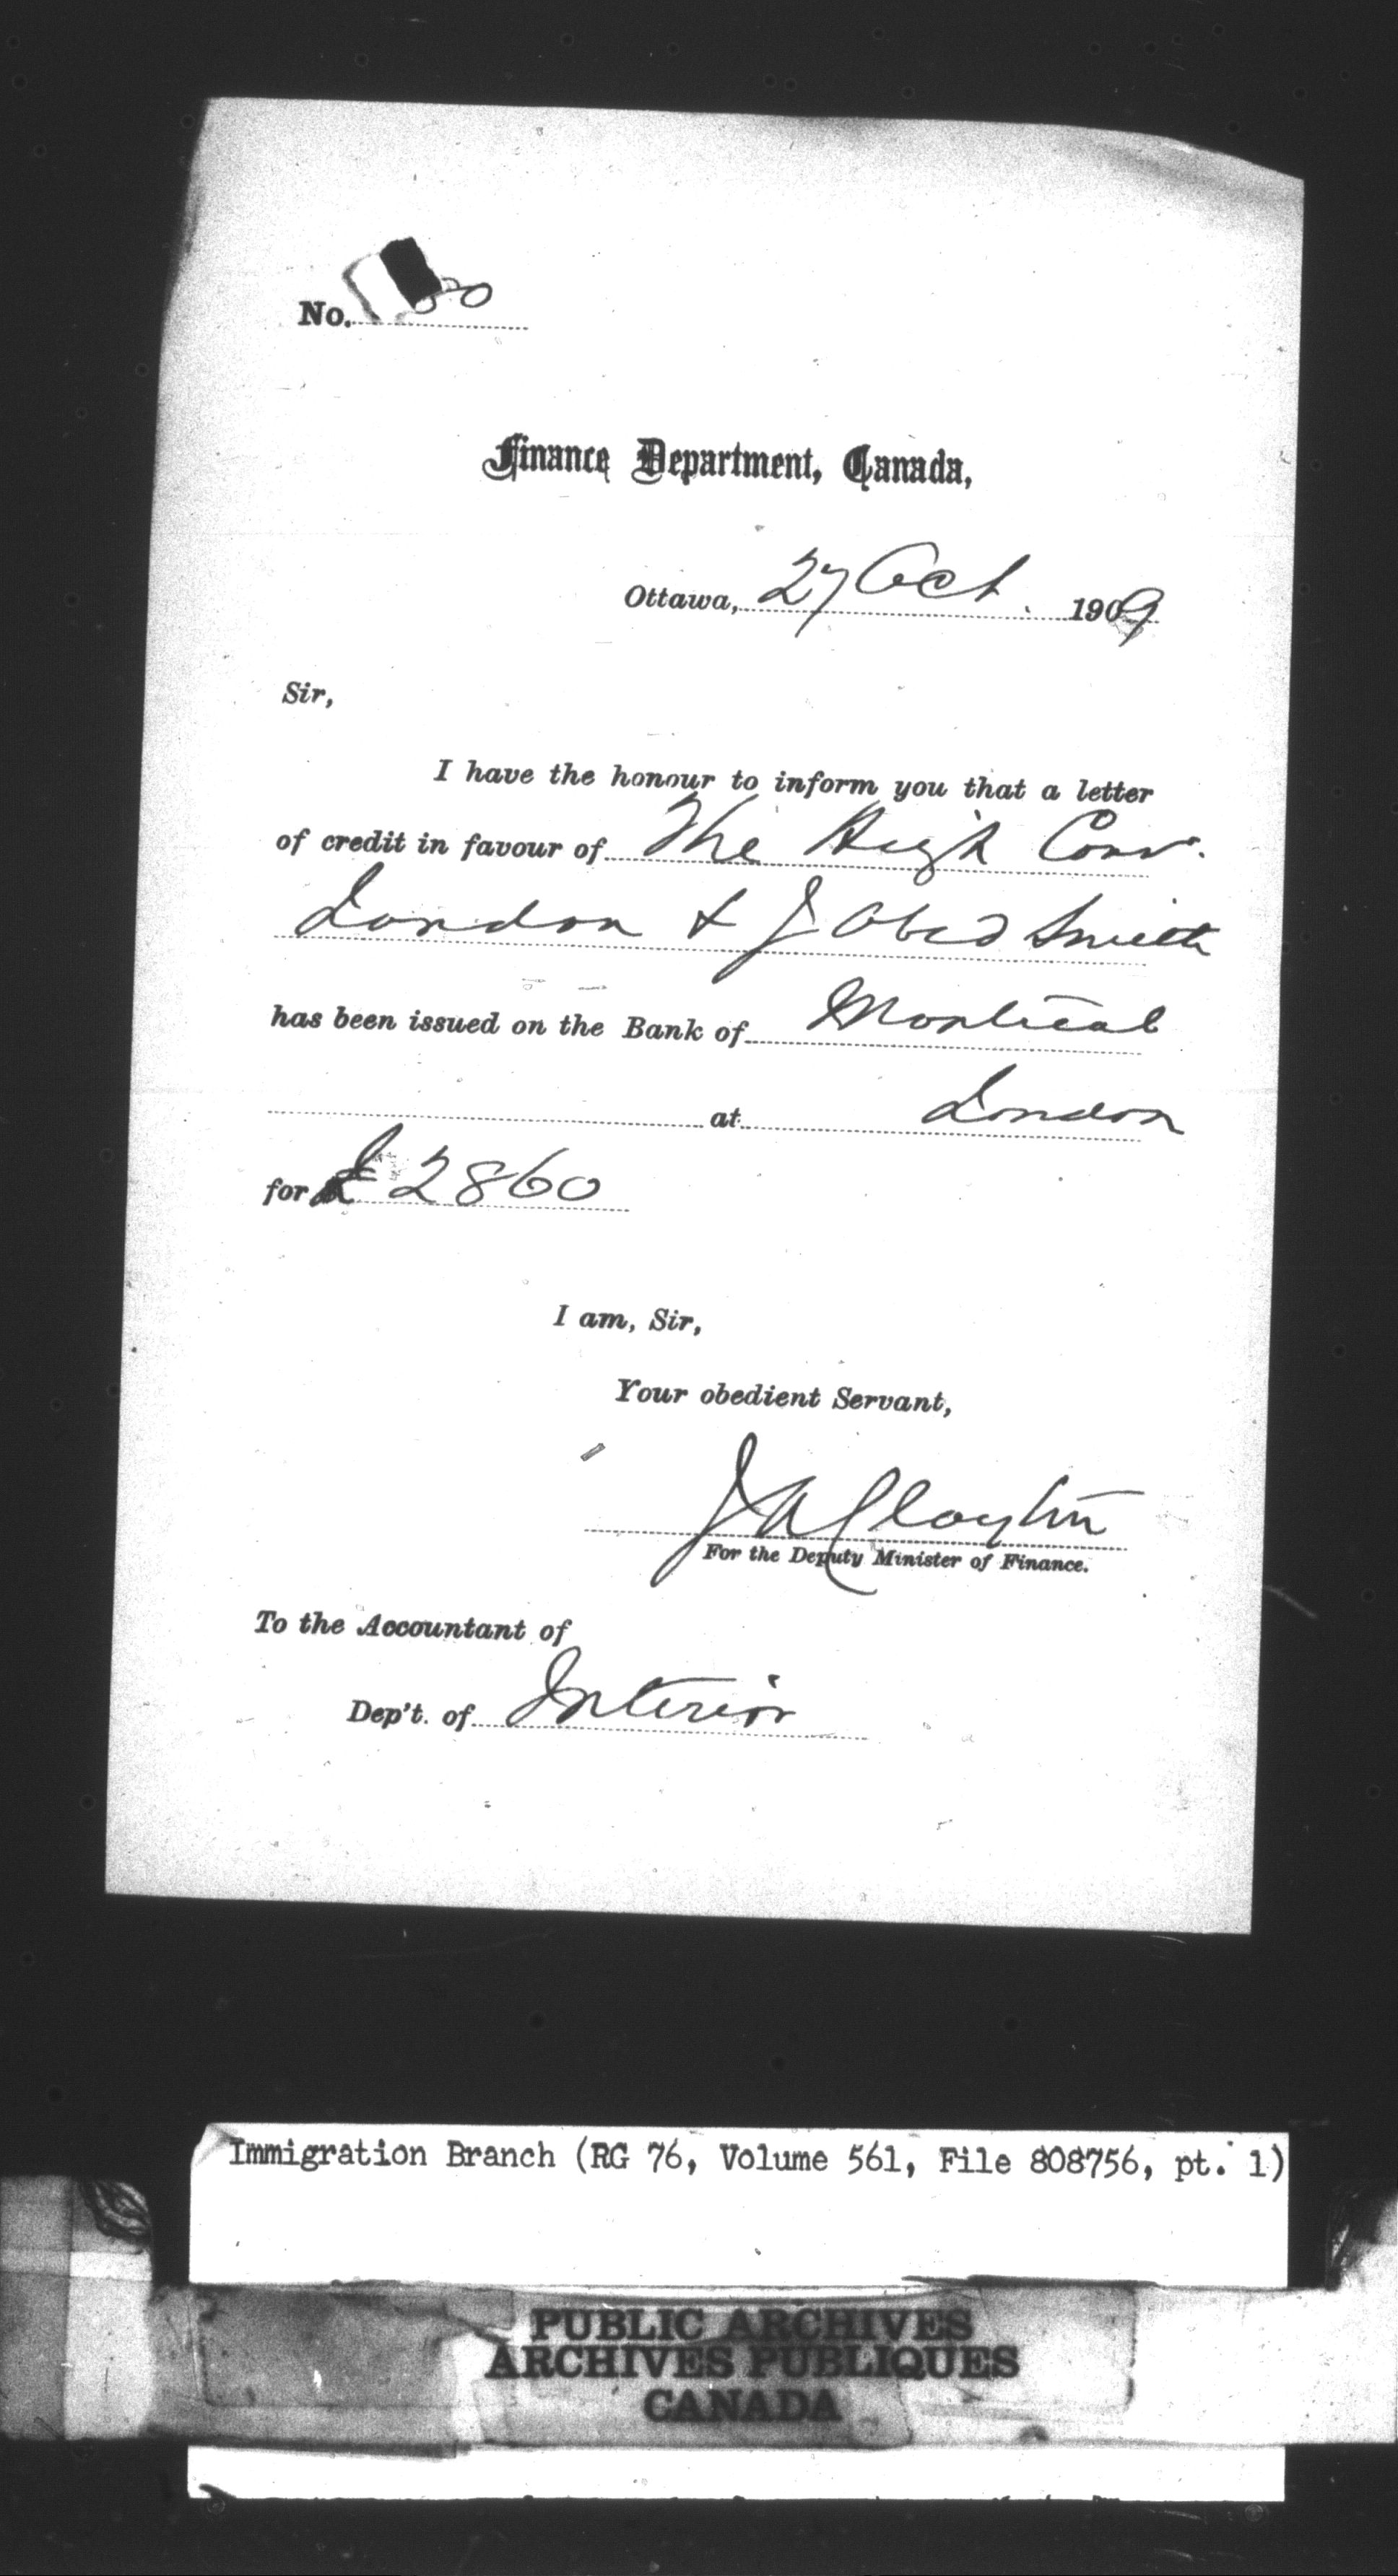 No.
Finance Department, Canada,
Ottawa, 27 Oct. 1909
Sir,
I have the honour to inform you that a letter
of credit in favour of The High Com.
London & J Obed Smith
has been issued on the Bank of Montreal
at London
for £ 2860
I am, Sir,
Your obedient Servant,
J A Clayton
For the Deputy Minister of Finance.
To the Accountant of
Dep't. of Interior
Immigration Branch (RG 76, Volume 561, File 808756, pt. 1)
PUBLIC ARCHIVES
ARCHIVES PUBLIQUES
CANADA